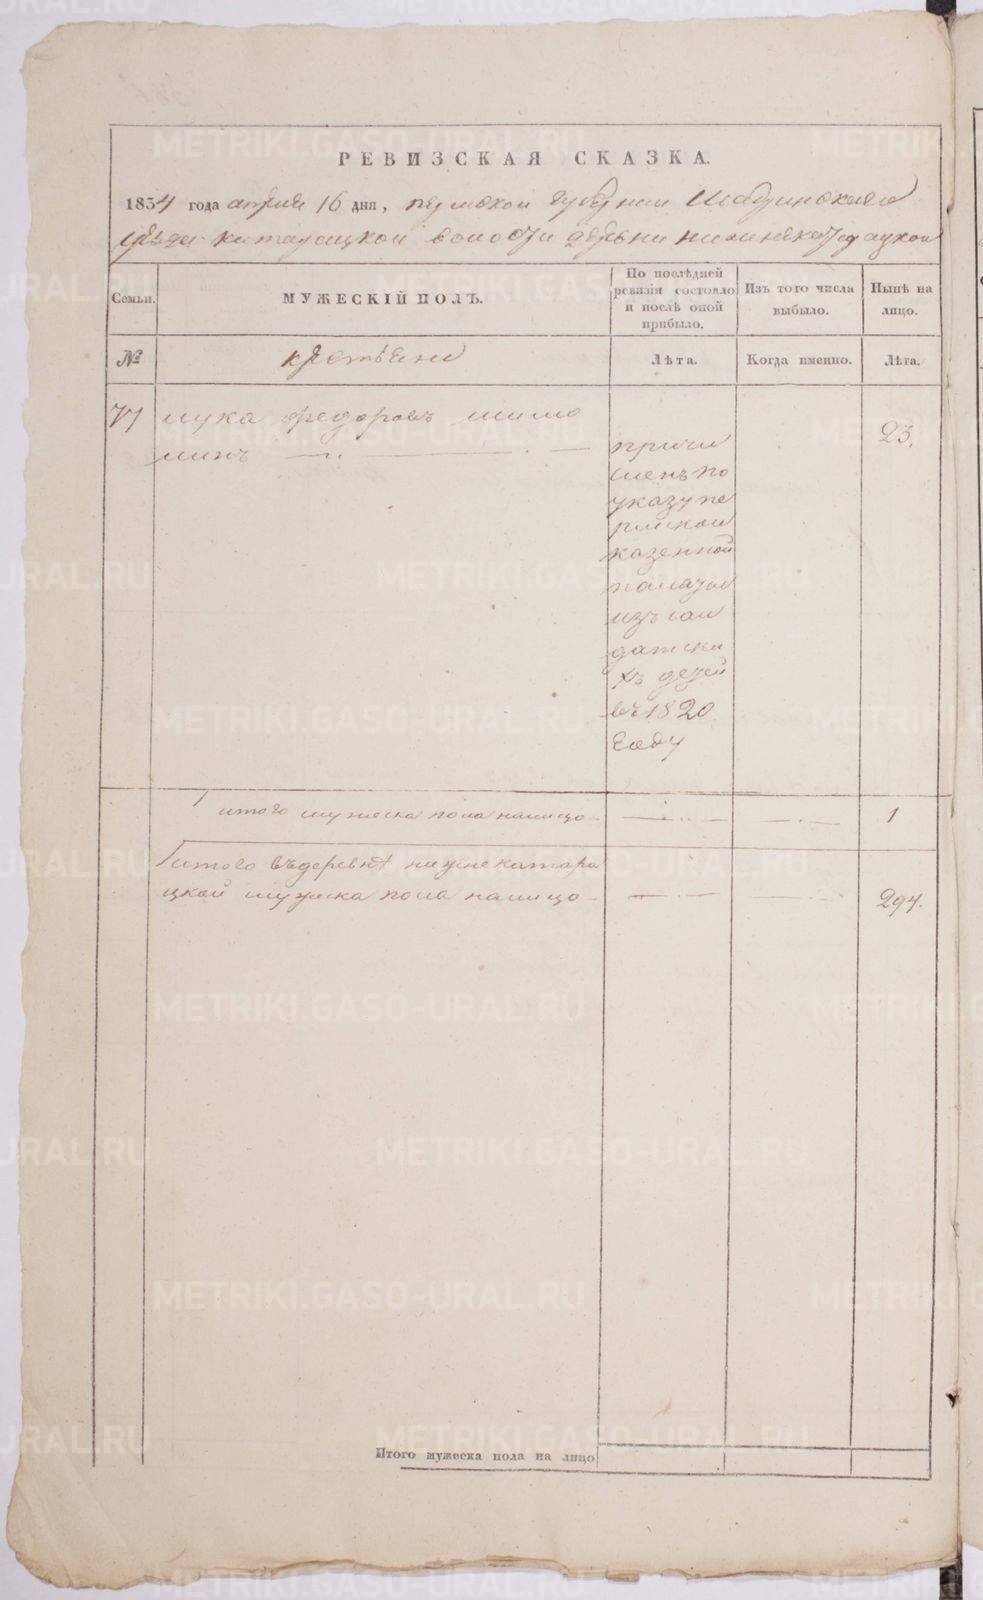 РЕВИЗСКАЯ СКАЗКА.
1834 года апреля 16 дня, пермской губернии Шадринскаго
уезда катарацкой волости деревни нижнекатарацкой
Семьи.
МУЖЕСКІЙ ПОЛЪ.
По послѣдней
ревизіи состояло
и послѣ оной
прибыло.
Изъ того числа
выбыло.
Нынѣ на
лицо.
№
крестьяне
Лѣта.
Когда именно.
Лѣта.
71
лука федоровъ шишо
нинъ
23.
причи
сленъ по
указу пе
рмской
казенной
палаты
изъ сол
датски
хъ детей
въ 1820
Году
итого мужеска пола налицо
1
итого въ деревнѣ нижнекатара
цкой мужеска пола налицо
294.
Итого мужеска пола на лицо
METRIKI.GASO-URAL.RU